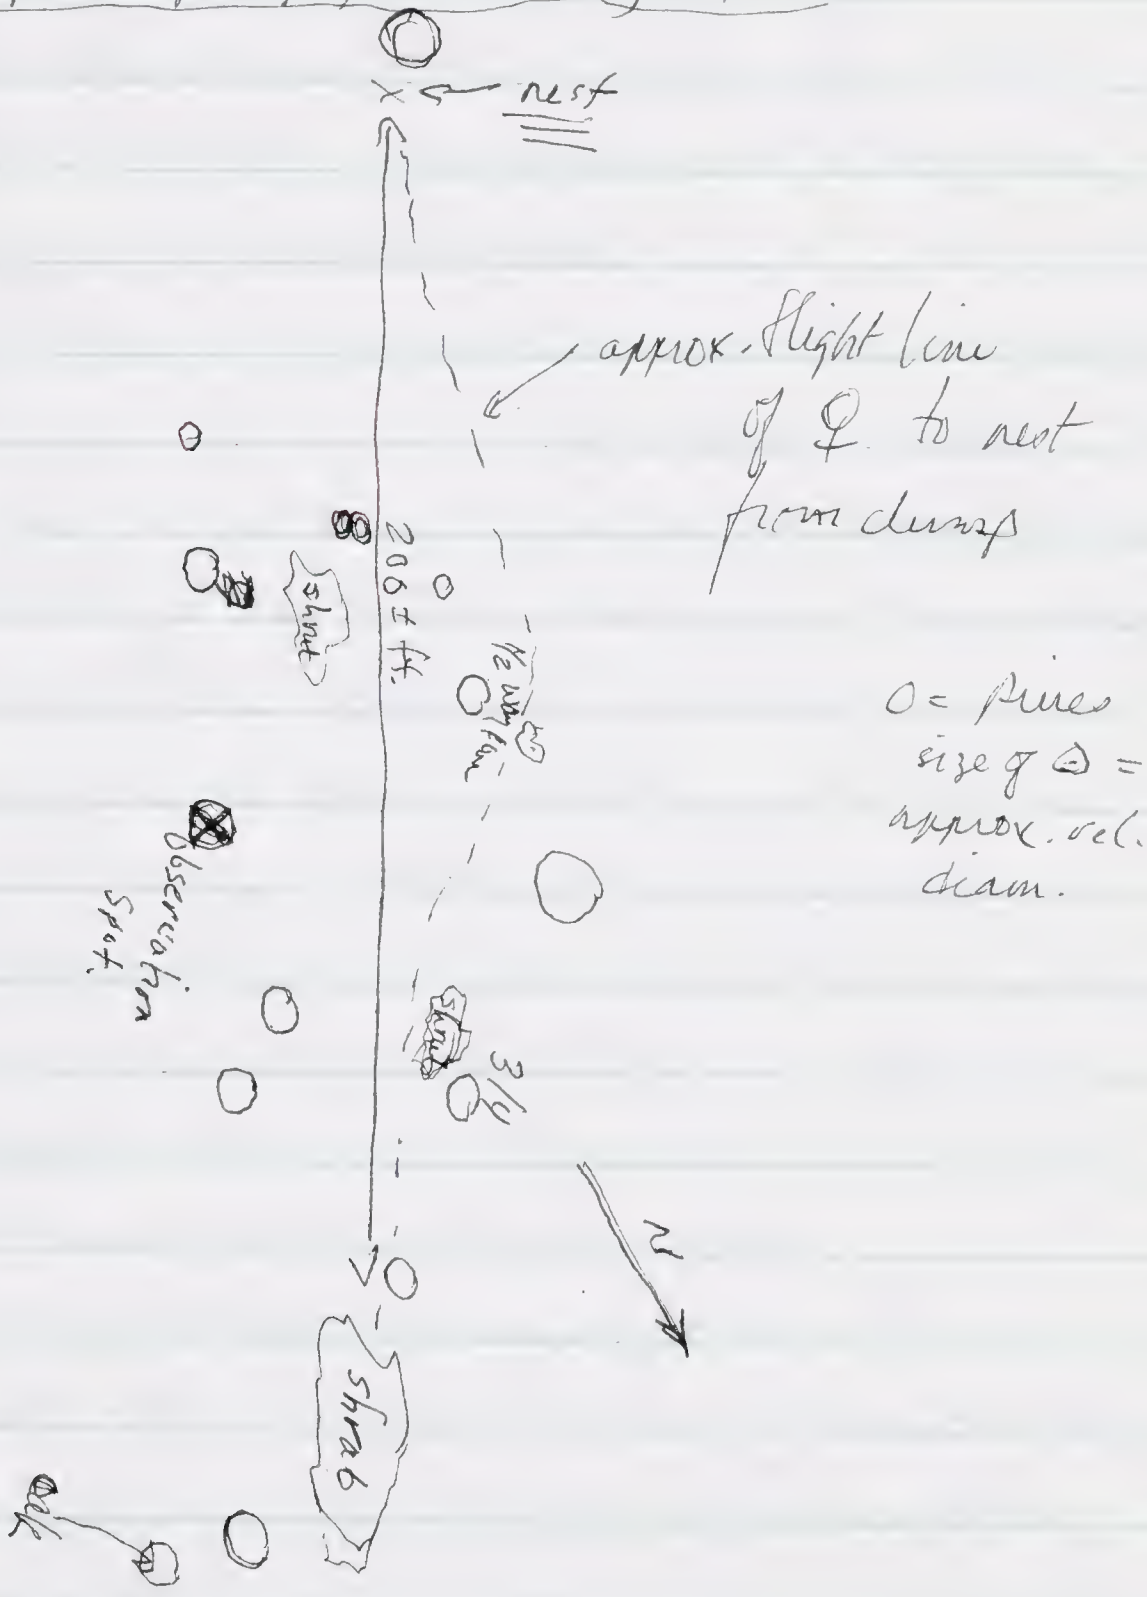 nest
approx. flight line
of ♀ to nest
from dump
206 ± ft.
shrub
1/2 way
O = pines
size of O =
approx. rel.
diam.
Observation
Spot.
shrub
3/4
N
shrub
oak